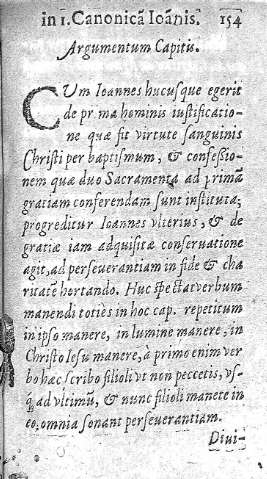 in 1. Canonicā Ioānis. 154
Argumentum Capitis.
CUm Ioannes hucusque egerit
de pr ma hominis iustificatio-
ne quæ fit virtute sanguinis
Christi per baptismum, & confessio-
nem quæ duo Sacramenta ad primā
gratiam conferendam sunt instituta;
progreditur Ioannes vlterius, & de
gratiæ iam adquisitæ conseruatione
agit, ad perseuerantiam in fide & cha
ritate hortando. Huc spectat verbum
manendi toties in hoc cap. repetitum
in ipso manere, in lumine manere, in
Christo Iesu manere, à primo enim ver
bo hæc scribo filioli vt non peccetis, vs-
q; ad vltimū, & nunc filioli manete in
eo, omnia sonant perseuerantiam.
Diui-